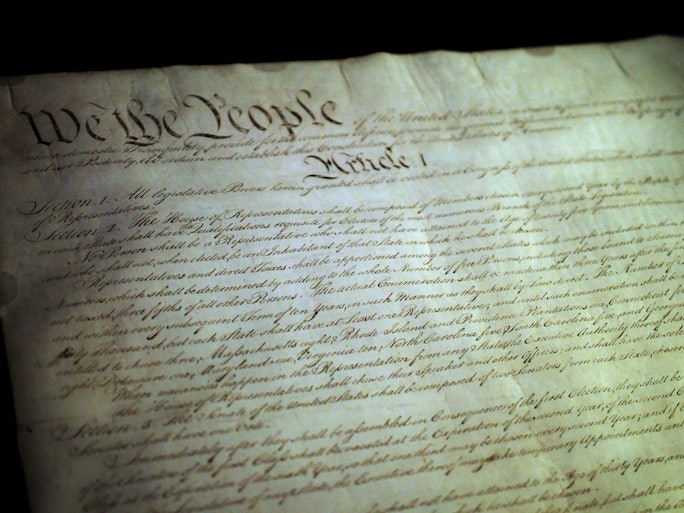 We the People of the United States
insure domestic Tranquility, provide for the common defence,
and our Posterity, do ordain and establish this
Article I
Section 1. All legislative Powers herein granted shall be vested in a Congress of the United States
of Representatives.
Section 2. The House of Representatives shall be composed of Members chosen every second Year by the People
in each State shall have the Qualifications requisite for Electors of the most numerous Branch of the State Legislature.
No Person shall be a Representative who shall not have attained to the Age of twenty five Years
and who shall not, when elected, be an Inhabitant of that State in which he shall be chosen.
Representatives and direct Taxes shall be apportioned among the several States which may be included
Numbers, which shall be determined by adding to the whole Number of free Persons, including those bound to
not taxed, three fifths of all other Persons. The actual Enumeration shall be made within three Years after the
and within every subsequent Term of ten Years, in such Manner as they shall by Law direct. The Number of
thirty Thousand, but each State shall have at Least one Representative; and until such enumeration shall be
entitled to chuse three, Massachusetts eight, Rhode Island and Providence Plantations one, Connecticut
eight, Delaware one, Maryland six, Virginia ten, North Carolina five, South Carolina five, and
When vacancies happen in the Representation from any State, the Executive Authority thereof shall
The House of Representatives shall chuse their Speaker and other Officers; and shall have the sole
Section 3. The Senate of the United States shall be composed of two Senators from each State, chosen
Senator shall have one Vote.
Immediately after they shall be assembled in Consequence of the first Election, they shall be
of the Senators of the first Class shall be vacated at the Expiration of the second Year, of the second
Class at the Expiration of the sixth Year, so that one third may be chosen every second Year; and if
of any State, the Executive thereof may make temporary Appointments
shall not have attained to the Age of thirty Years, and
shall be chosen.